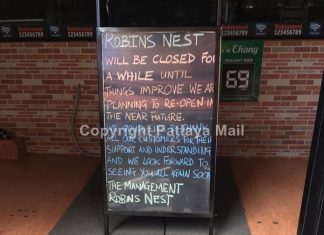 Robinsnest
123456789
Robinsnest
123456789
ROBINS NEST
WILL BE CLOSED FOR
A WHILE UNTIL
THINGS IMPROVE WE AR
PLANNING TO RE-OPEN IN
THE NEAR FUTURE.
ALL OUR CUSTOMERS FOR THEIR
SUPPORT AND UNDERSTANDING
AND WE LOOK FORWARD TO
SEEING YOU ALL AGAIN SOON
THE MANAGEMENT
ROBINS NEST
Chang
69
Copyright Pattaya Mail